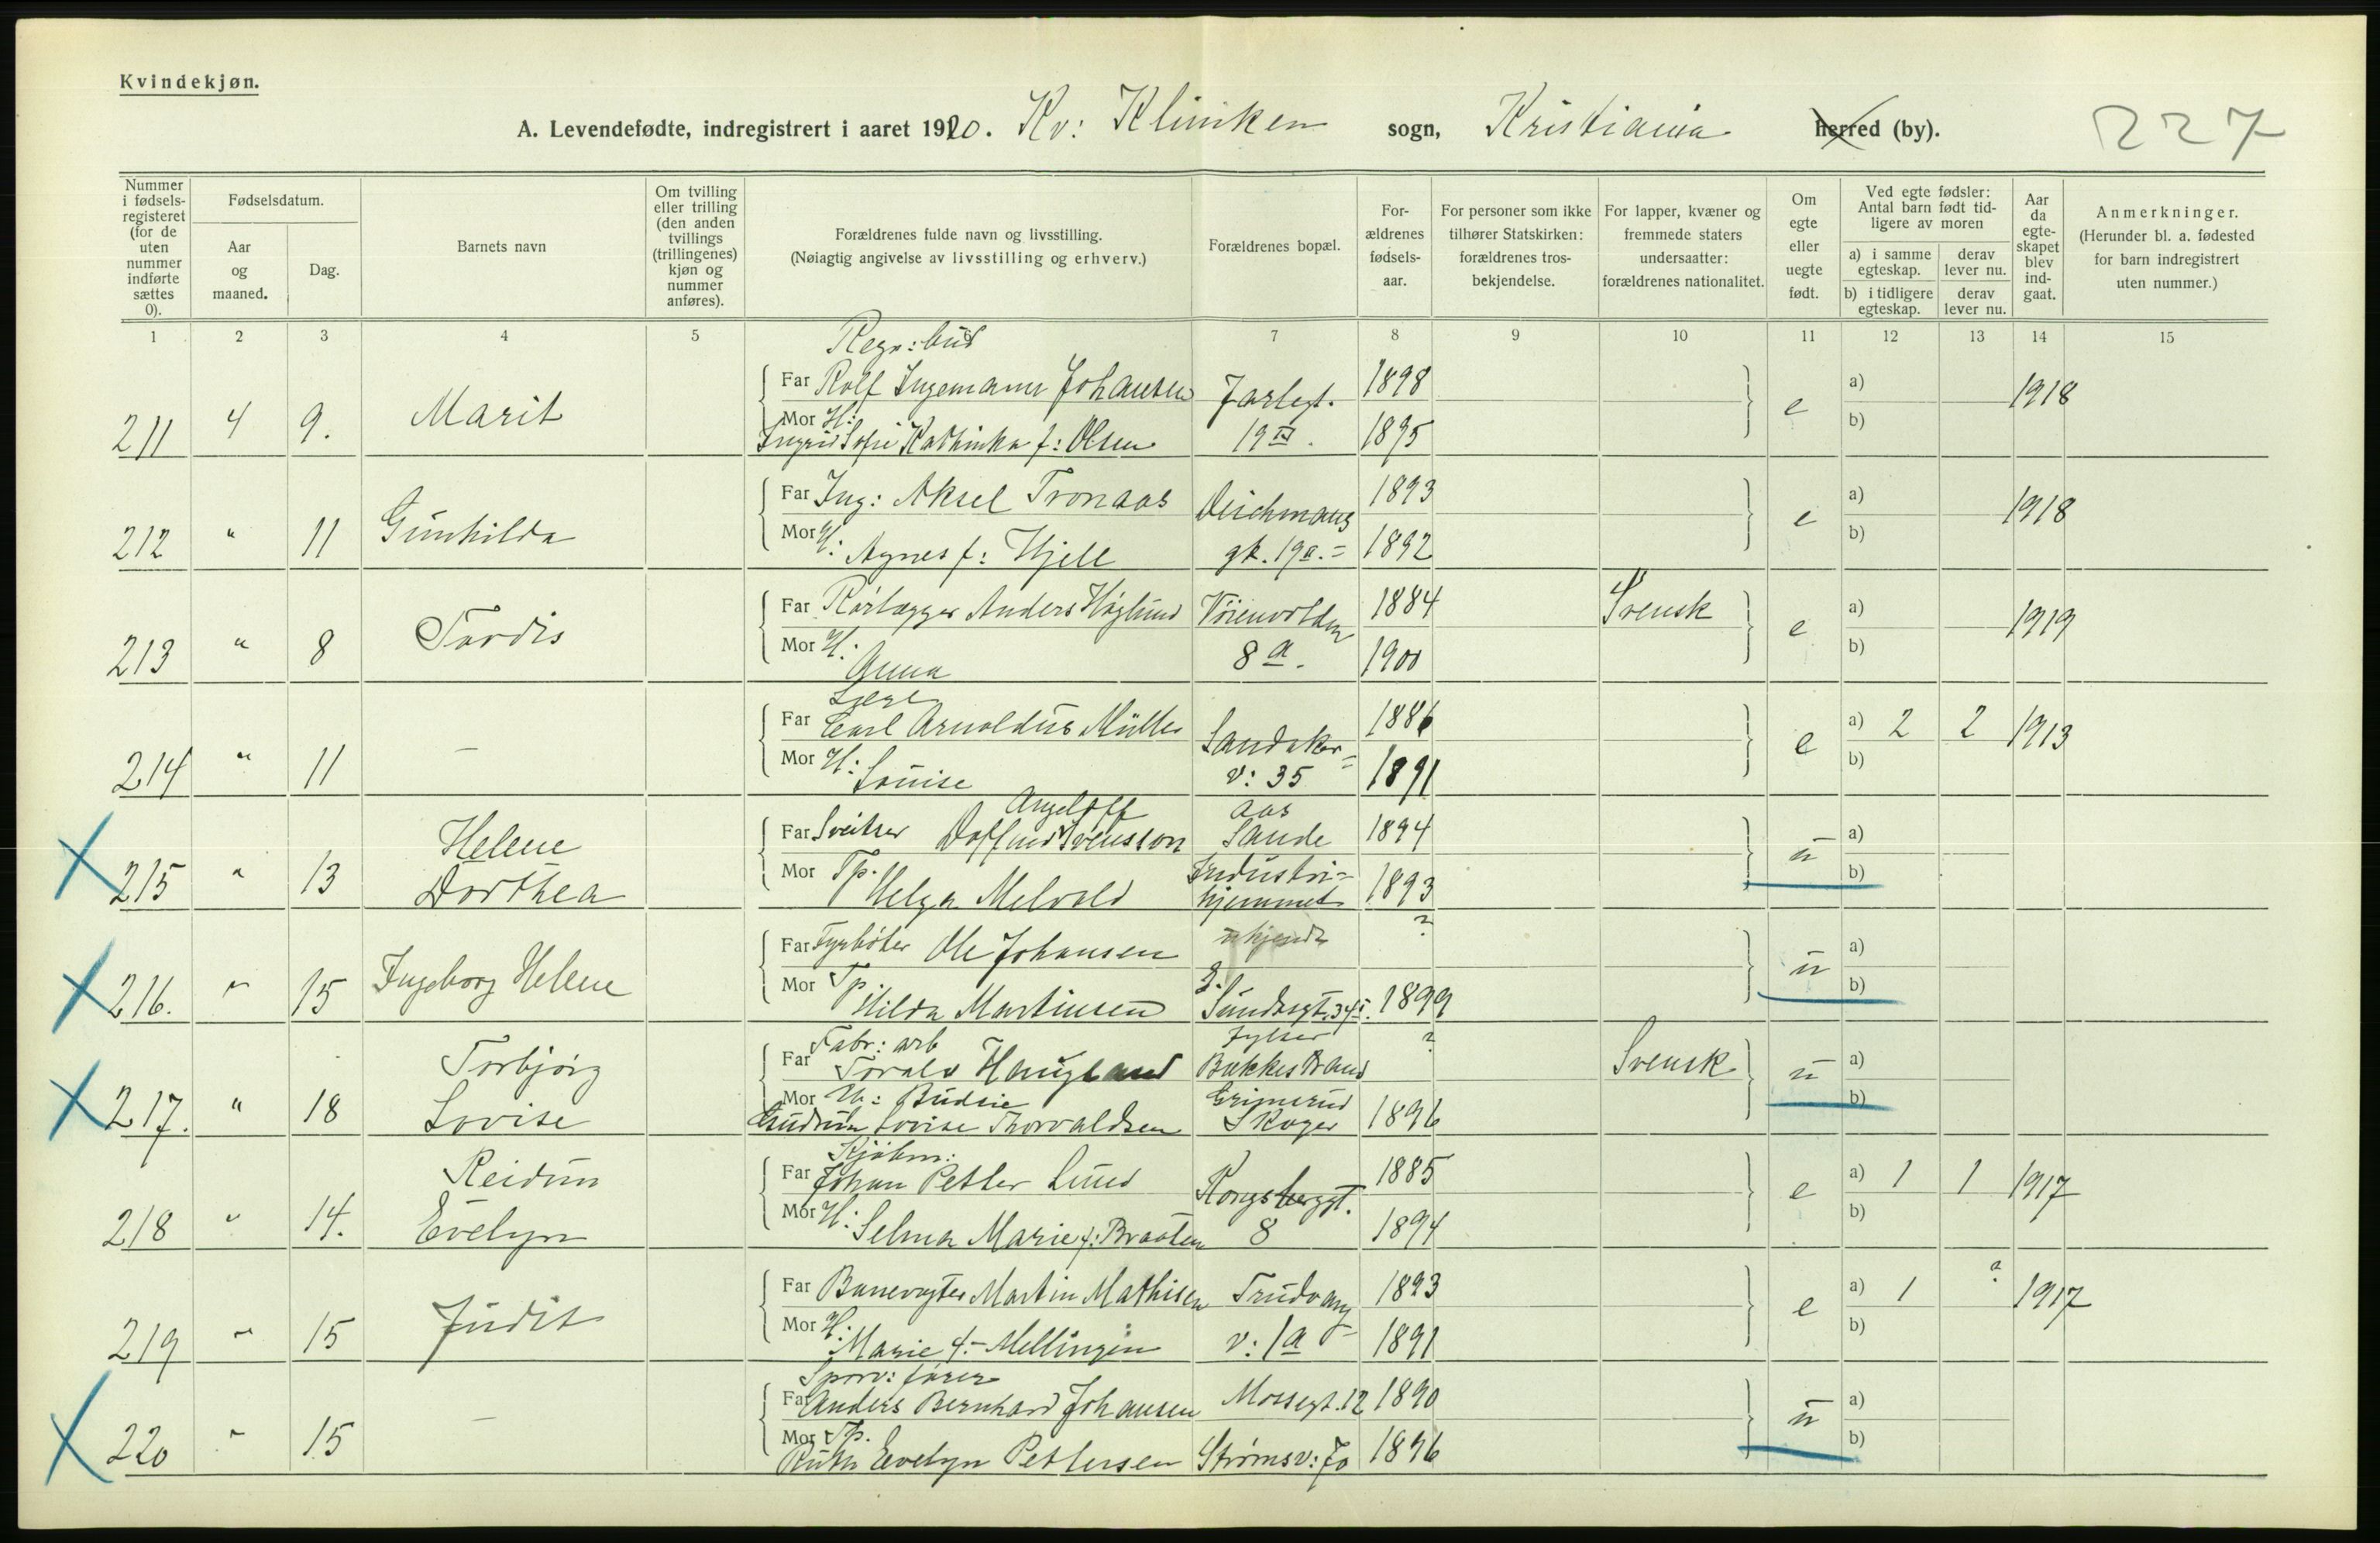 Kvindekjøn.
A. Levendefødte, indregistrert i aaret 1920. Kv: Kliniken sogn, Kristiania herred (by). 227
Nummer i fødsels-registeret (for de uten nummer indførte sættes 0).
Fødselsdatum.
Aar og maaned.
Dag.
Barnets navn
Om tvilling eller trilling (den anden tvillings (trillingenes) kjøn og nummer anføres).
Forældrenes fulde navn og livsstilling.
(Nøiagtig angivelse av livsstilling og erhverv.)
Forældrenes bopæl.
For-ældrenes fødsels-aar.
For personer som ikke tilhører Statskirken: forældrenes tros-bekjendelse.
For lapper, kvæner og fremmede staters undersaatter: forældrenes nationalitet.
Om egte eller uegte født.
Ved egte fødsler: Antal barn født tid-ligere av moren
a) i samme egteskap.
derav lever nu.
b) i tidligere egteskap.
derav lever nu.
Aar da egte-skapet blev ind-gaat.
Anmerkninger.
(Herunder bl. a. fødested for barn indregistrert uten nummer.)
1 2 3 4 5 6 7 8 9 10 11 12 13 14 15
Regn: bud
211 4 9. Marit Far Rolf Ingemann Johansen Jarlegt. 1898 e a) 1918
Mor H: Ingrid Sofie Kathinka f: Olsen 19 IV. 1895 b)
212 " 11 Gunhilda Far Ing: Aksel Tronaas Deichmans 1893 e a) 1918
Mor H: Agnes f: Hjell gt. 19a.= 1892 b)
213 " 8 Tordis Far Rørlægger Anders Høglund Vøienvolden 1884 Svensk e a) 1919
Mor H: Anna 8 a. 1900 b)
214 " 11 — Far Carl Arnoldus Müller Sandaker= 1886 e a) 2 2 1913
Mor H: Louise v: 35 1891 b)
Angeloff Aas
215 " 13 Helene Dorthea Far Sveitser Svensson Sande 1894 u a)
Mor Tp. Helga Melvold Industri=hjemmet 1893 b)
216. " 15 Ingeborg Helene Far Fyrbøter Ole Johansen ukjendt ? u a)
Mor Tp. Hilda Martinsen Sundsgt. 34 I. 1899 b)
Fabr: arb
217. " 18 Torbjørg Lovise Far Toralv Haugland Bakkestrand ? Svensk u a)
Mor Ug: Budeie Gudrun Lovise Thorvaldsen Grimsrud Skoger 1896 b)
Kjøbm:
218 " 14. Reidun Evelyn Far Johan Petter Lund Kongsberggt. 1885 e a) 1 1 1917
Mor H: Selma Marie f: Braaten 8 1894 b)
219 " 15 Judit Far Banevogter Martin Mathisen Trudvang 1893 e a) 1 ? 1917
Mor H: Marie f:- Mellingen v: 1a 1891 b)
Sporv: fører
220 " 15 — Far Anders Bernhard Johansen Mossegt. 12 1890 u a)
Mor Tp. Ruth Evelyn Pettersen Strømsv: 70 1896 b)